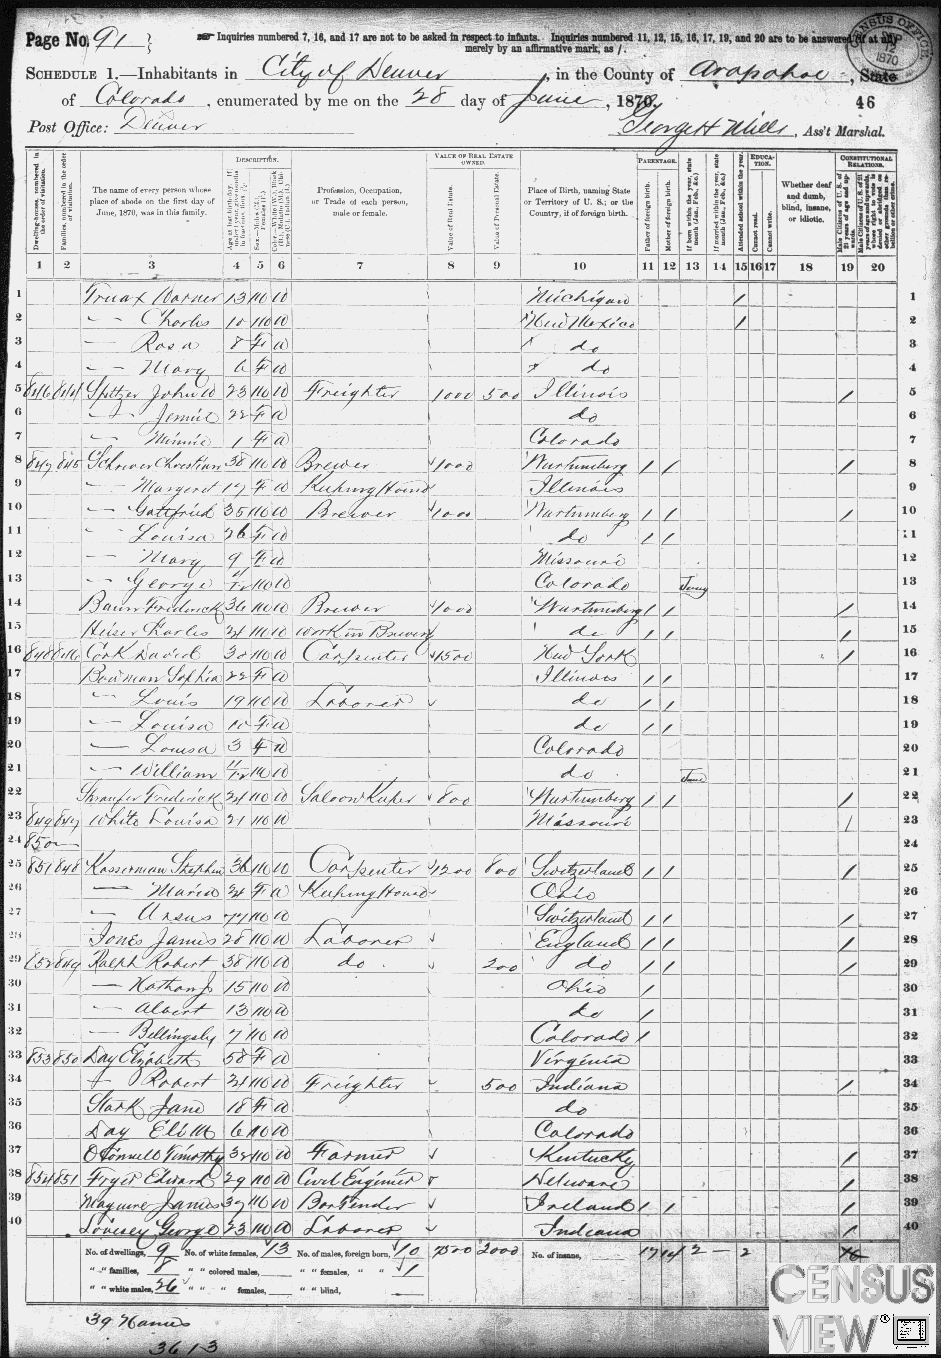 Page No. 91
Inquiries numbered 7, 16, and 17 are not to be asked in respect to infants. Inquiries numbered 11, 12, 15, 16, 17, 19, and 20 are to be answered (if at all) merely by an affirmative mark, as /.
CENSUS OFFICE 12 1870
SCHEDULE 1.—Inhabitants in City of Denver, in the County of Arapahoe, State
of Colorado, enumerated by me on the 28 day of June, 1870. 46
Post Office: Denver George H Mills, Ass't Marshal.
DESCRIPTION. VALUE OF REAL ESTATE OWNED. PARENTAGE. EDUCATION. CONSTITUTIONAL RELATIONS.
Dwelling-houses, numbered in the order of visitation.
Families, numbered in the order of visitation.
The name of every person whose place of abode on the first day of June, 1870, was in this family.
Profession, Occupation, or Trade of each person, male or female.
Value of Real Estate.
Value of Personal Estate.
Place of Birth, naming State or Territory of U. S.; or the Country, if of foreign birth.
Father of foreign birth.
Mother of foreign birth.
If born within the year, state month (Jan., Feb., &c.)
If married within the year, state month (Jan., Feb., &c.)
Attended school within the year.
Cannot read.
Cannot write.
Whether deaf and dumb, blind, insane, or idiotic.
1 2 3 4 5 6 7 8 9 10 11 12 13 14 15 16 17 18 19 20
1 Truax Warner 13 M W Michigan / 1
2 — Charles 10 M W New Mexico / 2
3 — Rosa 8 F W do 3
4 — Mary 6 F W do 4
5 846 844 Spitzer John W 23 M W Freighter 1000 500 Illinois / 5
6 — Jennie 22 F W do 6
7 — Minnie 1 F W Colorado 7
8 847 845 Christian 38 M W Brewer 1000 Wurtumberg / / / 8
9 — Margeret 17 F W Keeping House Illinois 9
10 — Gottfried 35 M W Brewer 1000 Wurtumberg / / / 10
11 — Louisa 26 F W do / / 11
12 — Mary 9 F W Missouri 12
13 — George M W Colorado 13
14 Baur Frederick 36 M W Brewer 1000 Wurtumberg / / / 14
15 Heiser Charles 24 M W Work in Brewery do / / / 15
16 848 846 Cork David 30 M W Carpenter 1500 New York / 16
17 Bowman Sophia 22 F W Illinois / / 17
18 — Louis 19 M W Laborer do / / 18
19 — Louisa 10 F W do / / 19
20 — Louisa 3 F W Colorado 20
21 — William 11/12 M W do June 21
22 Frederick 24 M W Saloon Keeper 800 Wurtumberg / / / 22
23 849 847 White Louisa 21 M W Missouri / 23
24 850 — 24
25 851 848 Kasserman Stephen 36 M W Carpenter 1200 800 Switzerland / / / 25
26 — Maria 24 F W Keeping House Ohio 26
27 — Ursus 77 M W Switzerland / / / 27
28 Jones James 28 M W Laborer England / / / 28
29 852 849 Ralph Robert 38 M W do 200 do / / / 29
30 — Nathan J 15 M W Ohio / 30
31 — Albert 13 M W do / 31
32 — Billingsly 7 M W Colorado / 32
33 853 850 Day Elizabeth 58 F W Virginia 33
34 — Robert 21 M W Freighter 500 Indiana / 34
35 Stark Jane 18 F W do 35
36 Day Eli M 6 M W Colorado 36
37 O'Connell Timothy 32 M W Farmer Kentucky / 37
38 854 851 Fryer Edward 29 M W Civil Engineer Deleware / 38
39 Maguire James 39 M W Bar Tender Ireland / / / 39
40 Lovesey George 23 M W Laborer Indiana / 40
No. of dwellings, 9 No. of white females, 13 No. of males, foreign born, 10 7500 2000 No. of insane, 17 14 2 — 2
" " families, 8 " " colored males, " " females, " " 1
" " white males, 26 " " " females, " " blind,
39 Names
3613
CENSUS VIEW ®